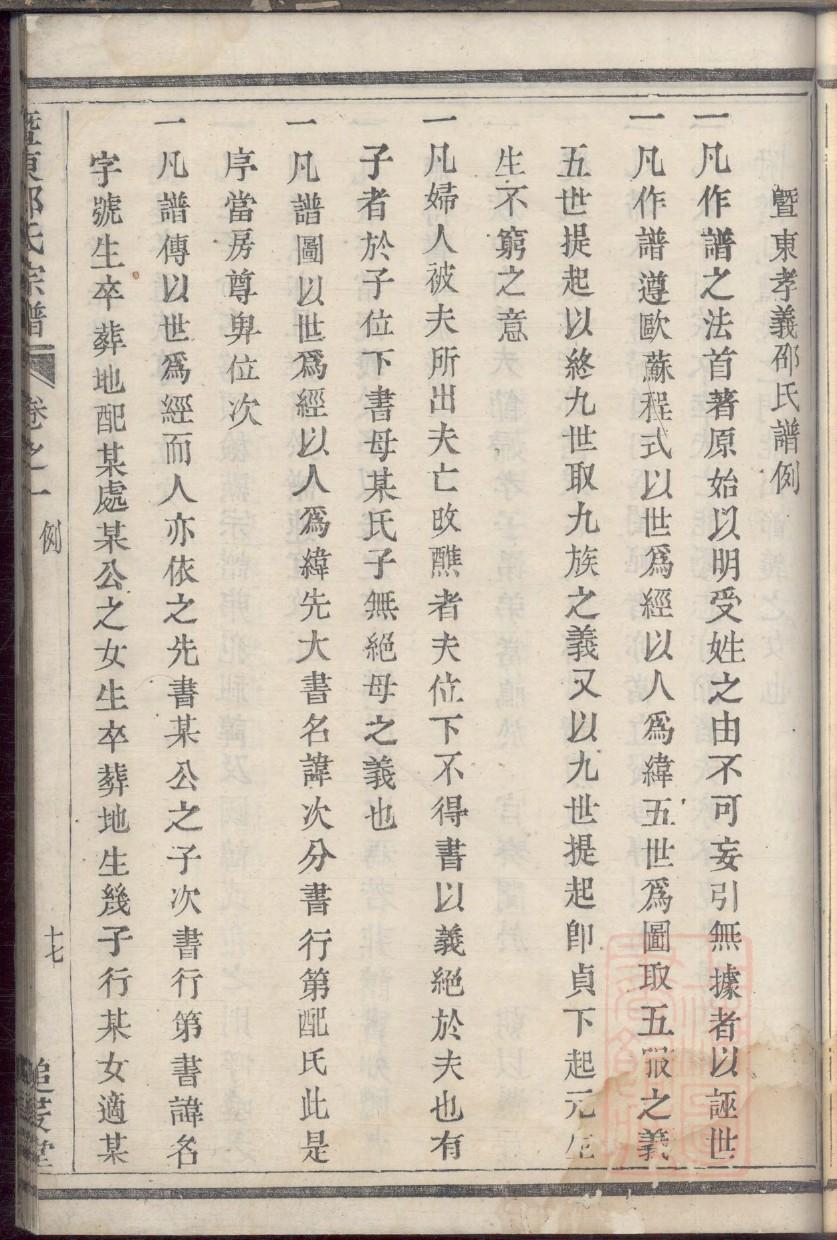 暨東孝義邵氏譜例
一凡作譜之法首著原始以明受姓之由不可妄引無據者以誣世
一凡作譜遵歐蘇程式以世爲經以人爲緯五世爲圖取五服之義
五世提起以終九世取九族之義又以九世提起卽貞下起元生
生不窮之意
一凡婦人被夫所出夫亡改醮者夫位下不得書以義絕於夫也有
子者於子位下書母某氏子無絕母之義也
一凡譜圖以世爲經以人爲緯先大書名諱次分書行第配氏此是
序當房尊卑位次
一凡譜傳以世爲經而人亦依之先書某公之子次書行第書諱名
字號生卒葬地配某處某公之女生卒葬地生幾子行某女適某
暨東邵氏宗譜
卷之一
例
十七
追慕堂